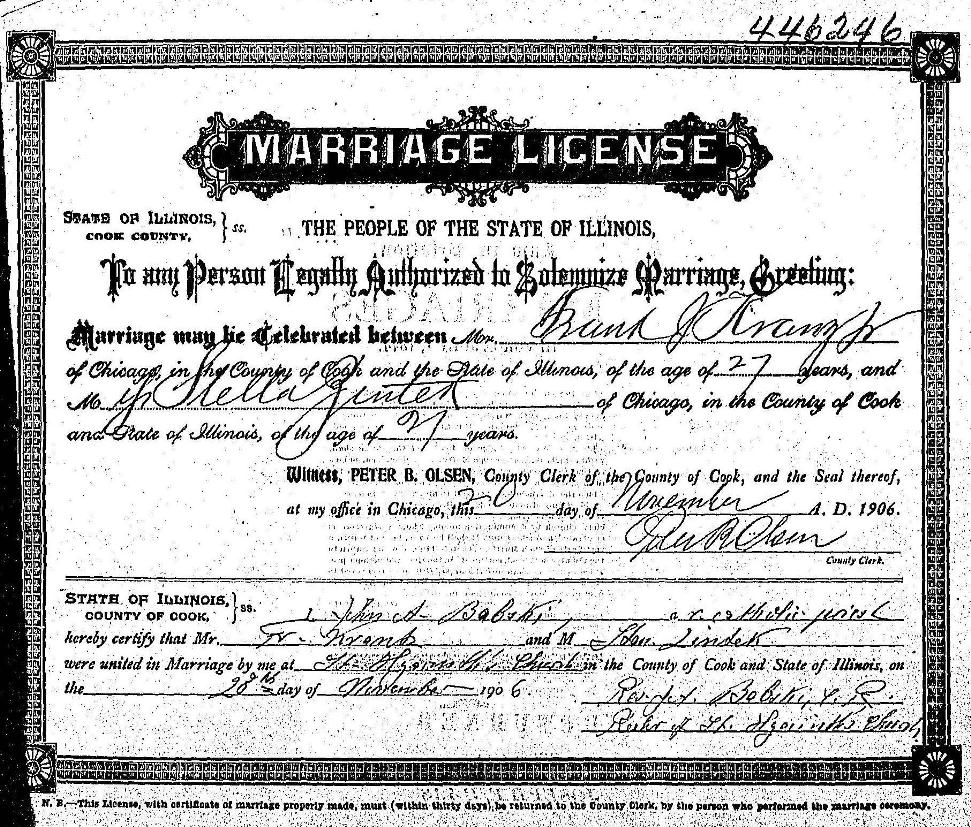 446246
MARRIAGE LICENSE
STATE OF ILLINOIS, COOK COUNTY, } ss. THE PEOPLE OF THE STATE OF ILLINOIS,
To any Person Legally Authorized to Solemnize Marriage, Greeting:
Marriage may be Celebrated between Mr. Frank J Kranz Jr
of Chicago, in the County of Cook and the State of Illinois, of the age of 27 years, and
M Stella of Chicago, in the County of Cook
and State of Illinois, of the age of 21 years.
Witness, PETER B. OLSEN, County Clerk of the County of Cook, and the Seal thereof,
at my office in Chicago, this 20 day of November A. D. 1906.
Peter B Olsen
County Clerk.
STATE OF ILLINOIS, COUNTY OF COOK, } ss. I, John A. Babski a r. catholic priest
hereby certify that Mr. Fr. Kranz and M
were united in Marriage by me at St. Hyacinth's Church in the County of Cook and State of Illinois, on
the 28th day of November 1906
Rev. J. A. Babski, C. R.
Rector of St. Hyacinths Church
N. B.—This License, with certificate of marriage properly made, must (within thirty days) be returned to the County Clerk, by the person who performed the marriage ceremony.